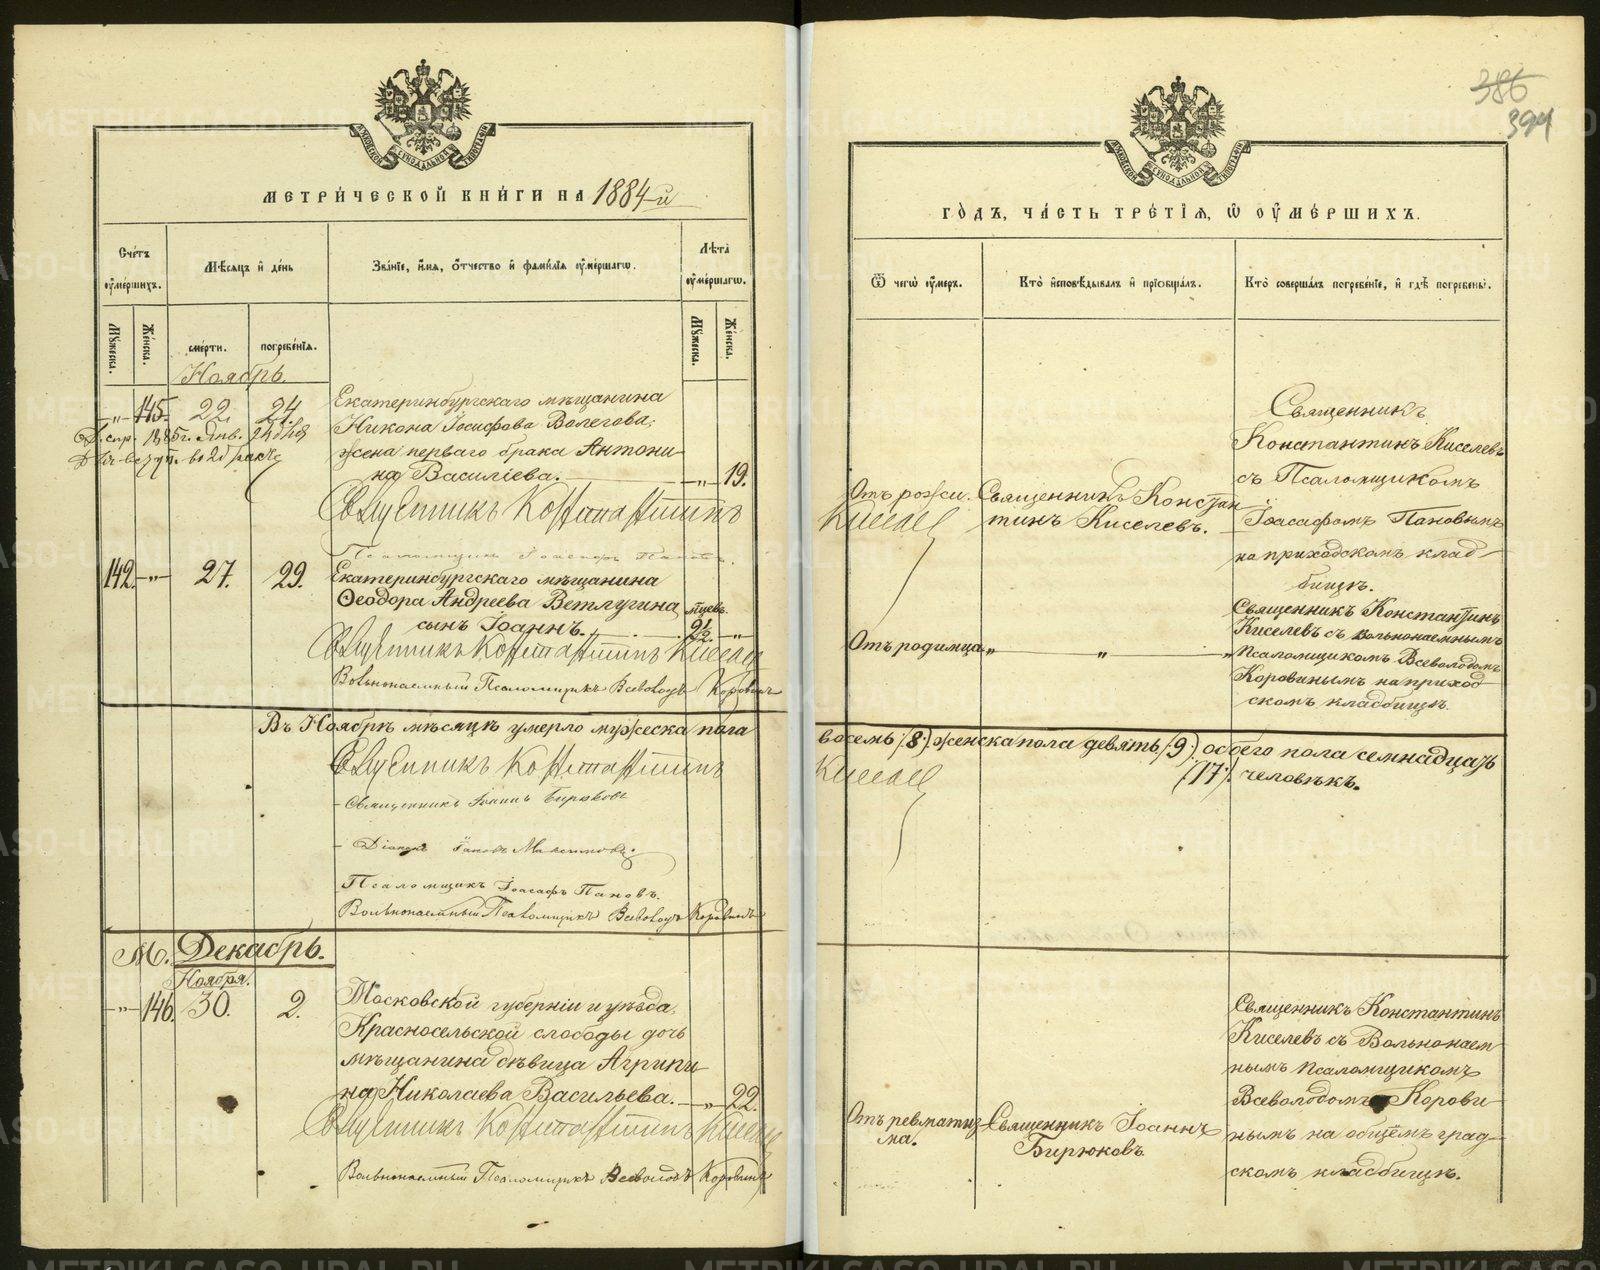 МЕТРИ́ЧЕСКОЙ КНИ́ГИ НА 1884-й
Сче́тъ ᲂу҆ме́ршихъ.
Мѣ́сяцъ и҆ де́нь
Зва́нїе, и҆́мя, ѻ҆́тчество и҆ фами́лїя ᲂу҆ме́ршагѡ.
Лѣ́та ᲂу҆ме́ршагѡ.
Мꙋ́жеска.
Же́нска.
сме́рти.
погребе́нїя.
Мꙋ́жеска.
Же́нска.
Ноябрь.
-„- 145. 22. 24.
Екатеринбургскаго мѣщанина
Никона Іосифова Волегова,
жена перваго брака Антони-
на Василіева. -„- 19.
Священникъ Константинъ
Псаломщикъ Іоасафъ Пановъ.
142. -„- 27. 29.
Екатеринбургскаго мѣщанина
Ѳеодора Андреева Ветлугина
сынъ Іоаннъ. мѣсев. 9½. „
Священникъ Константинъ Киселев
Вольнонаемный Псаломщикъ Всеволодъ Коровинъ
Въ Ноябрѣ мѣсяцѣ умерло мужеска пола
Священникъ Константинъ
Священникъ Іоаннъ Бирюковъ
Діаконъ Іаковъ Максимовъ
Псаломщикъ Іоасафъ Пановъ.
Вольнонаемный Псаломщикъ Всеволодъ Коровинъ
М. Декабрь.
Ноября.
-„- 146. 30. 2.
Московской губерніи и уѣзда,
Красносельской слободы дочь
мѣщанина дѣвица Агрипи-
на Николаева Васильева. -„- 22.
Священникъ Константинъ Киселев
Вольнонаемный Псаломщикъ Всеволодъ Коровинъ
386
394
ГО́ДЪ, ЧА́СТЬ ТРЕ́ТЇЯ, Ѽ ОУ҆МЕ́РШИХЪ.
Ѿ чегѡ̀ ᲂу҆́меръ.
Кто̀ и҆сповѣ́дывалъ и҆ прїѡбща́лъ.
Кто̀ соверша́лъ погребе́нїе, и҆ гдѣ̀ погребены̀.
Отъ рожи.
Киселев
Священникъ Констан
тинъ Киселевъ.
Священникъ
Константинъ Киселевъ
съ Псаломщикомъ
Іоасафомъ Пановымъ
на приходскомъ клад-
бищѣ.
Отъ родимца „ „ „
Священникъ Константинъ
Киселевъ съ вольнонаемнымъ
Псаломщикомъ Всеволодомъ
Коровинымъ на приход-
скомъ кладбищѣ.
восемь (8.) женска пола девять (9.) обоего пола семнадцать
(17.) человѣкъ.
Киселев
Отъ ревматиз-
ма.
Священникъ Іоаннъ
Бирюковъ
Священникъ Константинъ
Киселевъ съ Вольнонаем-
нымъ псаломщикомъ
Всеволодомъ Корови-
нымъ на общемъ град-
скомъ кладбищѣ.